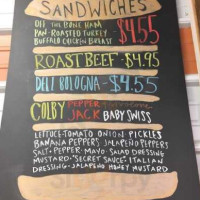 SANDWICHES
OFF THE BONE HAM
PAN-ROASTED TURKEY
BUFFALO CHICKEN BREAST
$4.55
ROAST BEEF-$4.95
DELI BOLOGNA-$4.55
COLBY PEPPER JACK
BABY SWISS
LETTUCE·TOMATO ONION PICKLES
BANANA PEPPERS JALAPEÑO PEPPERS
SALT·PEPPER·MAYO·SALAD DRESSING
MUSTARD·"SECRET SAUCE" ITALIAN
DRESSING·JALAPENO HONEY MUSTARD